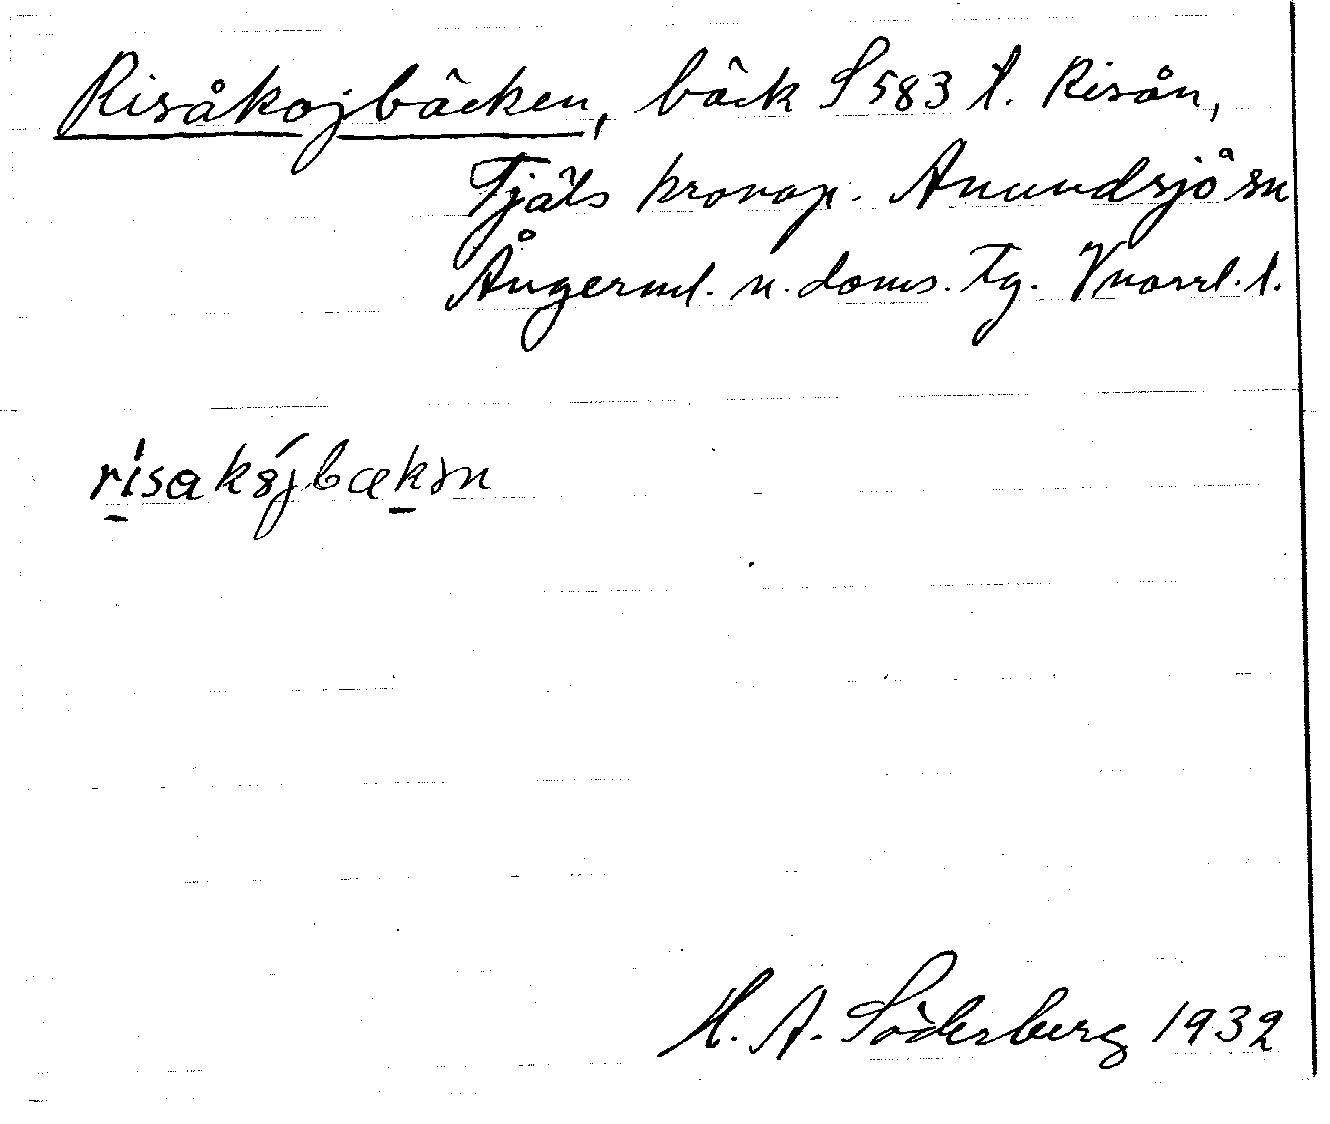 Risåkojbäcken, bäck S 583 t. Risån,
Tjäls kronop. Anundsjö sn
Ångerml. n. doms. Tg. Vnorrl. l.
H. A. Söderberg 1932